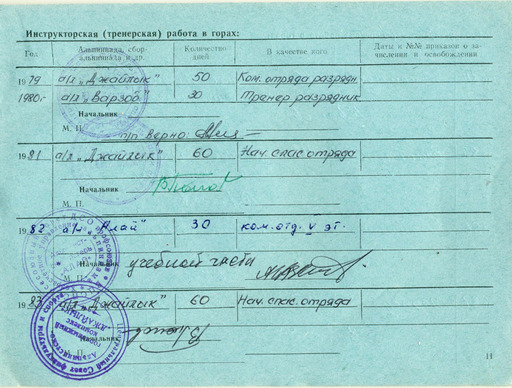 Инструкторская (тренерская) работа в горах:
Год Альплагерь, сбор альпиниада и др. Количество дней В качестве кого Даты и №№ приказов о зачислении и освобождении
1979 а/л „Джайлык" 50 Ком. отряда разрядн.
1980г. а/л „Варзоб" 30 Тренер разрядник
Начальник
М. П.
п/п Верно:
1981 а/л „Джайлык" 60 Нач. спас. отряда
Начальник
М. П.
1982 а/л „Алай" 30 ком. отд. V эт.
Начальник учебной части
М. П.
1983 а/л „Джайлык" 60 Нач. спас. отряда
Начальник
11